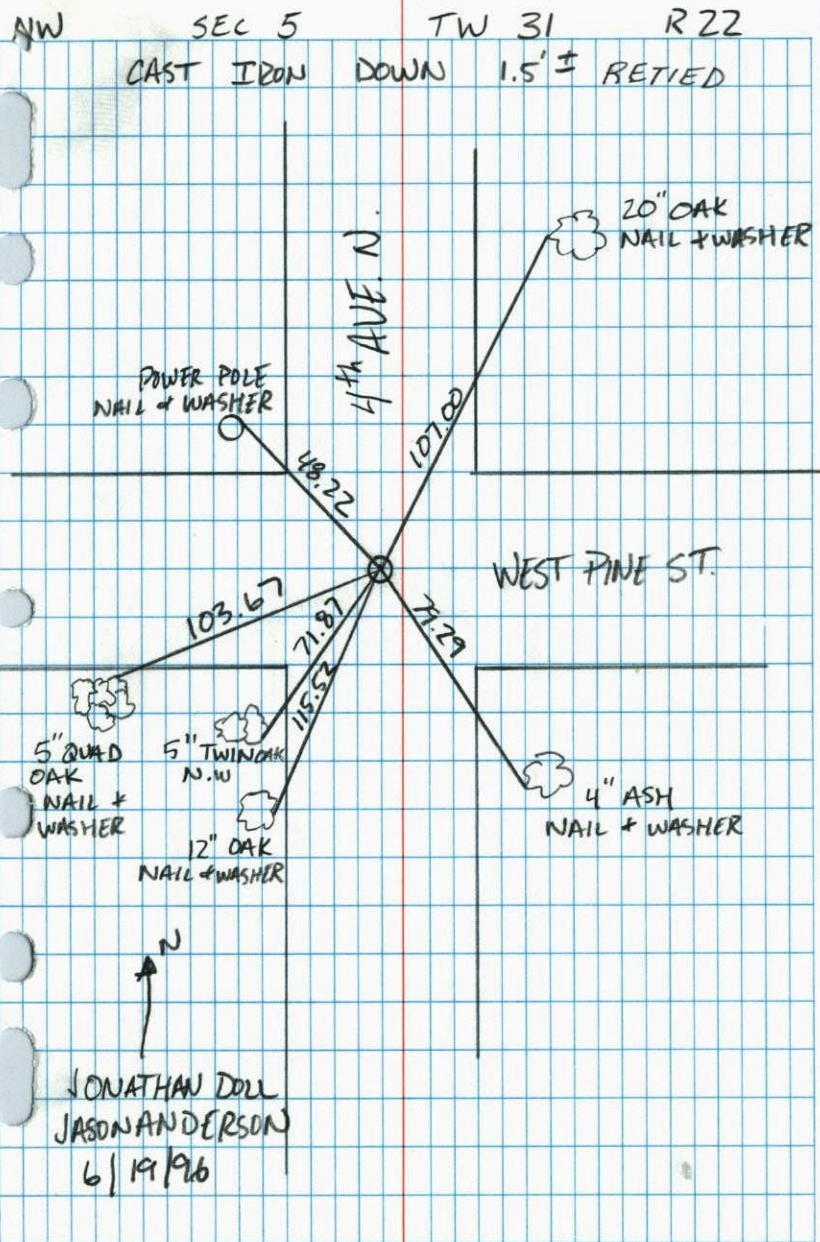 NW SEC 5 TW 31 R 22
CAST IRON DOWN 1.5' ± RETIED
20" OAK
NAIL + WASHER
4th AVE. N.
POWER POLE
NAIL + WASHER
107.00
48.22
WEST PINE ST.
103.67
71.87
115.52
5" QUAD
OAK
NAIL +
WASHER
5" TWIN OAK
N.W
4" ASH
NAIL + WASHER
12" OAK
NAIL + WASHER
N
JONATHAN DOLL
JASON ANDERSON
6/19/96